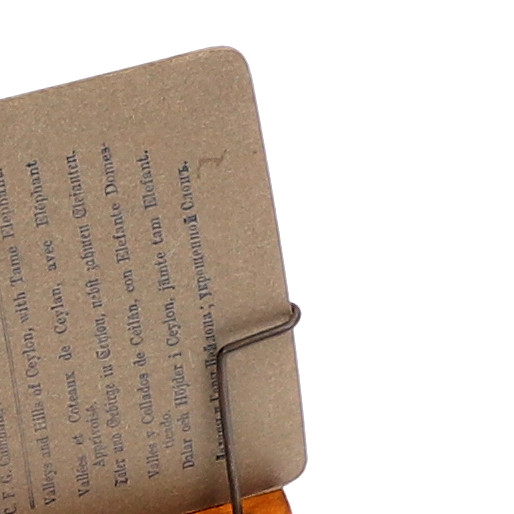 C. F. G. Cumming.
Valleys and Hills of Ceylon, with Tame Elephant.
Vallées et Coteaux de Ceylan, avec Eléphant
Apprivoisé.
Täler und Gebirge in Ceylon, nebst zahmen Elefanten.
Valles y Collados de Céilan, con Elefante Domes-
ticado.
Dalar och Höjder i Ceylon, jämte tam Elefant.
Долины и Горы Цейлона; укрощенной Слонъ.